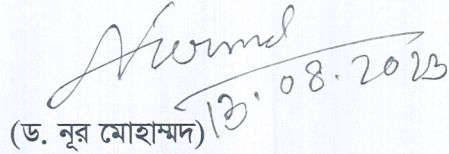 13.08.2023
(ড. নূর মোহাম্মদ)